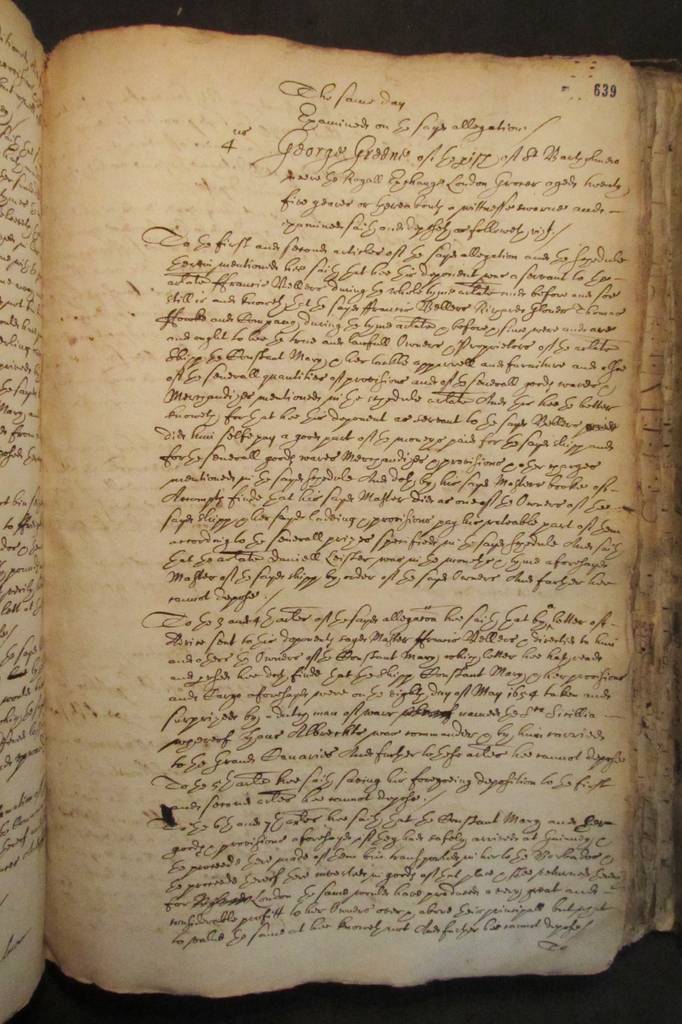 639
The same day
Examined on the sayd allegation /
4us
George Greene of the parish of St Bartholomew
neere the Royall Exchange London Grocer aged twenty
five yeares or thereabouts a wittnesse sworne and
examined saith and deposeth as followeth vizt /
To the first and second articles of the sayd allegation and the schedule
therein mentioned hee saith that hee this deponent was a servant to the
arlate ffrancis Vellers during the whole tyme arlate and before and soe
still is and knoweth that the sayd ffrancis Vellers Richard Thomas
and Company during the tyme arlate & before & since were and are
and ought to bee the true and lawfull Owners & Proprietors of the arlate
shipp the Constant Mary & her tackle apparrell and furniture and alsoe
of the severall quantities of provisions and of the severall goods wares &
Merchandizes mentioned in the schedule arlate And this hee the better
knoweth for that hee this deponent as servant to the sayd Vellers
did him selfe pay a good part of the moneys paid for the sayd shipp and
for the severall goods wares Merchandizes & provisions & other charges
mentioned in the sayd schedule And doth by his sayd Masters bookes of
Accompts finde that his sayd Master did as one of the Owners of the
sayd shipp & her sayd ladeing & provisions pay his rateable part of them
according to the severall prizes specified in the sayd schedule And saith
that the arlate Daniell was in the moneth & tyme aforesayd
Master of the sayd shipp by order of the sayd Owners And further hee
cannot depose /
To the 3 and 4th arles of the sayd allegaton hee saith that by a letter of
advice sent to this deponents sayd Master ffrancis Vellers & directed to him
and others the Owners of the Constant Mary which letter hee hath read
and hee doth finde that the shipp Constant Mary & her provisions
and Cargo aforesayd were on the eighth day of May 1654 taken and
surprized by a dutch man of warr named the Sta Cicillia
whereof was commander & by him carried
to the Grand Canaries And further to these arles hee cannot depose
To the 5th arle hee saith saving his foregoing deposition to the first
and second arles hee cannot depose /
To the 6th and 7th arles hee saith that if the Constant Mary and her
goods & provisions aforesayd if they had safely arrived at Guinney &
the proceeds there made of them bin transported in her to the Barbadoes &
the proceeds thereof there invested in goods of that place & shee returned
for London the same would have produced a very great and
considerable proffitt to her Owners over & above their principall but what
to value the same at hee knoweth not And further hee cannot depose /
To